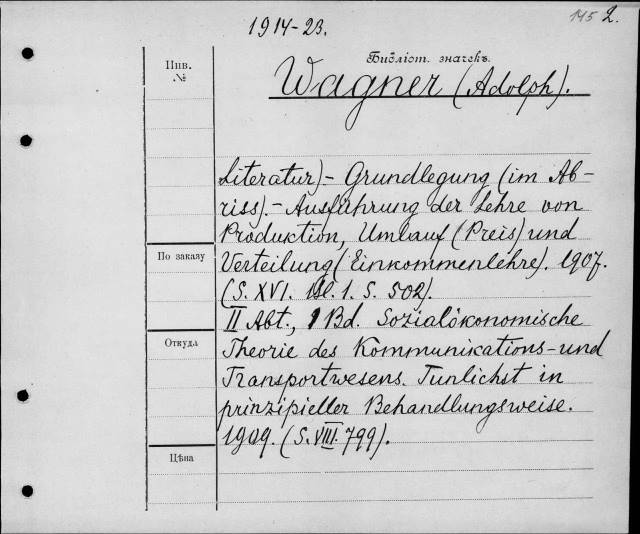 1914-23.
145 2.
Библіот. значекъ.
Инв.
№
Wagner (Adolph).
Literatur).- Grundlegung (im Ab-
riss).- Ausführung der Lehre von
Produktion, Umlauf (Preis) und
По заказу
Verteilung (Einkommenlehre). 1907.
(S. XVI. Bl. 1. S. 502).
II Abt., 1 Bd. Sozialökonomische
Откуда
Theorie des Kommunikations- und
Transportwesens. Tunlichst in
prinzipieller Behandlungsweise.
1909. (S. VIII. 799).
Цѣна